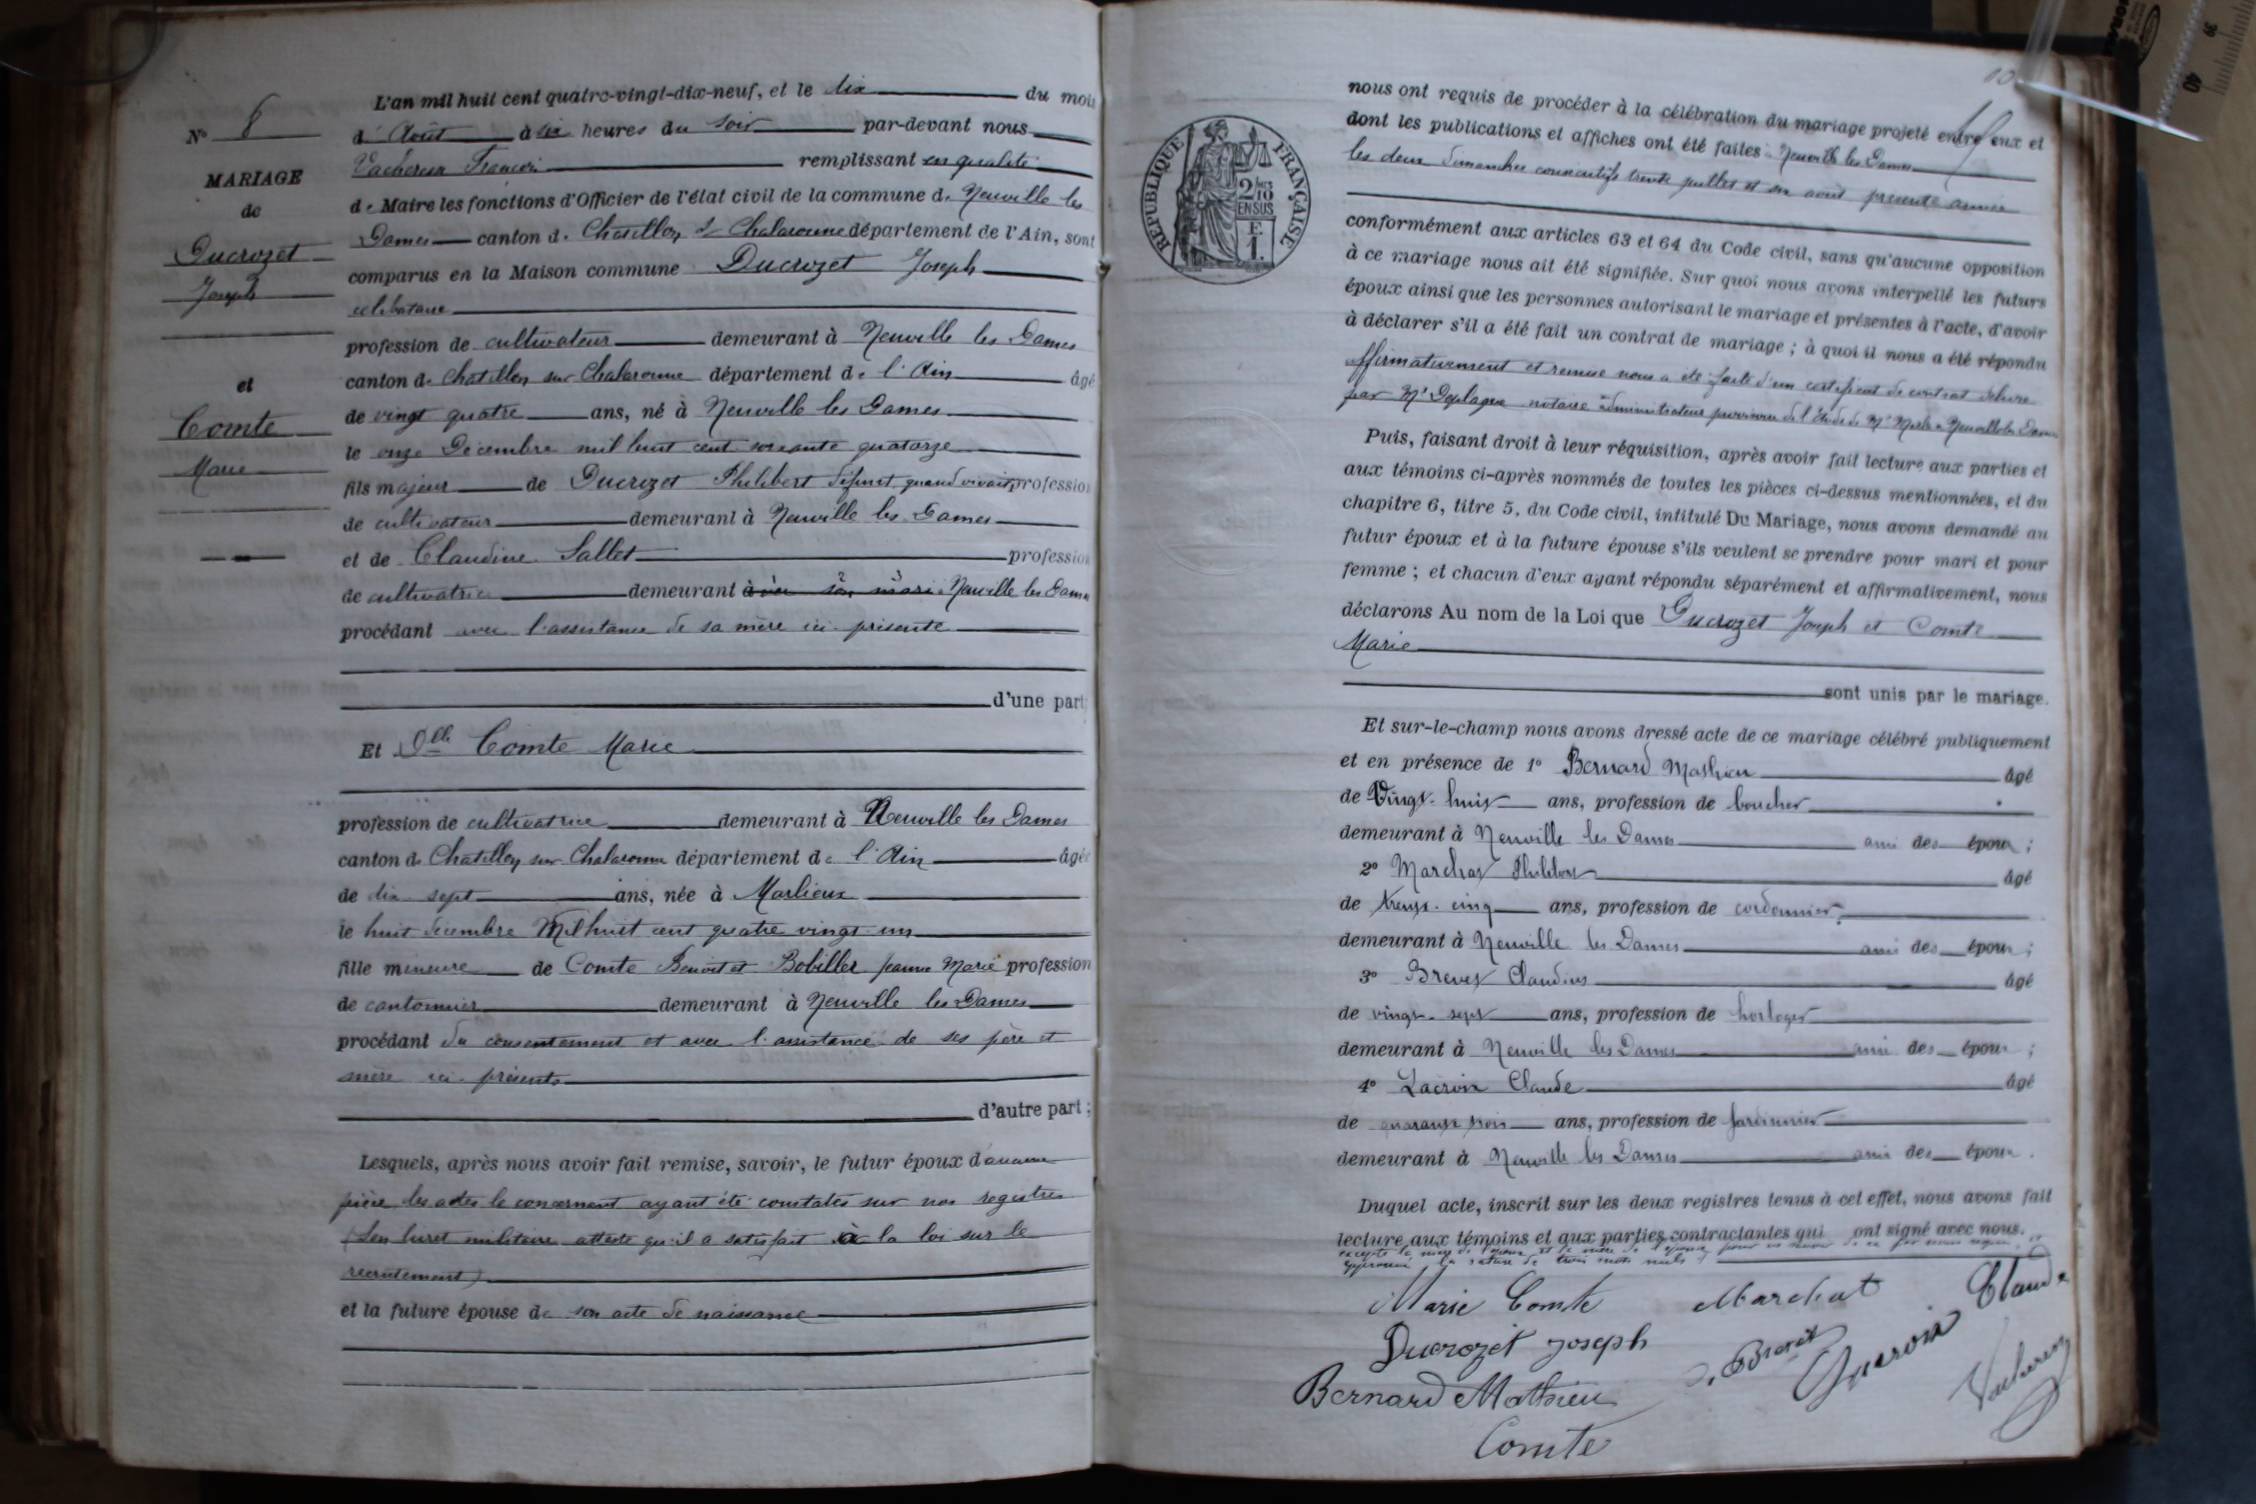 L'an mil huit cent quatre-vingt-dix-neuf, et le dix du mois
d' Août à six heures du soir par-devant nous
Vacheresse François remplissant en qualité
de Maire les fonctions d'Officier de l'état civil de la commune de Neuville les
Dames canton de Chatillon s/ Chalaronne département de l'Ain, sont
comparus en la Maison commune Ducrozet Joseph
célibataire
profession de cultivateur demeurant à Neuville les Dames
canton de Chatillon sur Chalaronne département de l'Ain âgé
de vingt quatre ans, né à Neuville les Dames
le onze Décembre mil huit cent soixante quatorze
fils majeur de Ducrozet Philibert défunt quand vivait profession
de cultivateur demeurant à Neuville les Dames
et de Claudine Sallet profession
de cultivatrice demeurant à avec son mari Neuville les Dames
procédant avec l'assistance de sa mère ici présente
d'une part;
Et Dlle Comte Marie
profession de cultivatrice demeurant à Neuville les Dames
canton de Chatillon sur Chalaronne département de l'Ain âgée
de dix sept ans, née à Marlieux
le huit décembre Mil huit cent quatre vingt un
fille mineure de Comte Benoit et Bobillet Jeanne Marie profession
de cantonnier demeurant à Neuville les Dames
procédant du consentement et avec l'assistance de ses père et
mère ici présents
d'autre part ;
Lesquels, après nous avoir fait remise, savoir, le futur époux d'aucune
pièce les actes le concernant ayant été constatés sur nos registres
(Son livret militaire atteste qu'il a satisfait à la loi sur le
recrutement)
et la future épouse de son acte de naissance
No 6
MARIAGE
de
Ducrozet
Joseph
et
Comte
Marie
10
RÉPUBLIQUE FRANÇAISE
2/10
EN SUS
F.
1.
nous ont requis de procéder à la célébration du mariage projeté entre eux et
dont les publications et affiches ont été faites à Neuville les Dames
les deux dimanches consécutifs trente juillet et six août présente année
conformément aux articles 63 et 64 du Code civil, sans qu'aucune opposition
à ce mariage nous ait été signifiée. Sur quoi nous avons interpellé les futurs
époux ainsi que les personnes autorisant le mariage et présentes à l'acte, d'avoir
à déclarer s'il a été fait un contrat de mariage ; à quoi il nous a été répondu
affirmativement et remise nous a été faite d'un certificat de contrat délivré
par Me Deplagne notaire administrateur provisoire de l'étude de Me Merle à Neuville les Dames
Puis, faisant droit à leur réquisition, après avoir fait lecture aux parties et
aux témoins ci-après nommés de toutes les pièces ci-dessus mentionnées, et du
chapitre 6, titre 5, du Code civil, intitulé Du Mariage, nous avons demandé au
futur époux et à la future épouse s'ils veulent se prendre pour mari et pour
femme ; et chacun d'eux ayant répondu séparément et affirmativement, nous
déclarons Au nom de la Loi que Ducrozet Joseph et Comte
Marie
sont unis par le mariage.
Et sur-le-champ nous avons dressé acte de ce mariage célébré publiquement
et en présence de 1º Bernard Mathieu âgé
de Vingt-huit ans, profession de boucher
demeurant à Neuville les Dames ami des époux ;
2º Marchat Philibert âgé
de trente-cinq ans, profession de cordonnier
demeurant à Neuville les Dames ami des époux ;
3º Brevet Claudius âgé
de vingt-sept ans, profession de horloger
demeurant à Neuville les Dames ami des époux ;
4º Lacroix Claude âgé
de quarante trois ans, profession de Jardinier
demeurant à Neuville les Dames ami des époux.
Duquel acte, inscrit sur les deux registres tenus à cet effet, nous avons fait
lecture aux témoins et aux parties contractantes qui ont signé avec nous.
excepté la mère de l'époux et la mère de l'épouse pour ne savoir de ce par nous requis
approuvé la rature de trois mots nuls
Marie Comte Marchat
Ducrozet Joseph Brevet Lacroix Claude
Bernard Mathieu
Comte